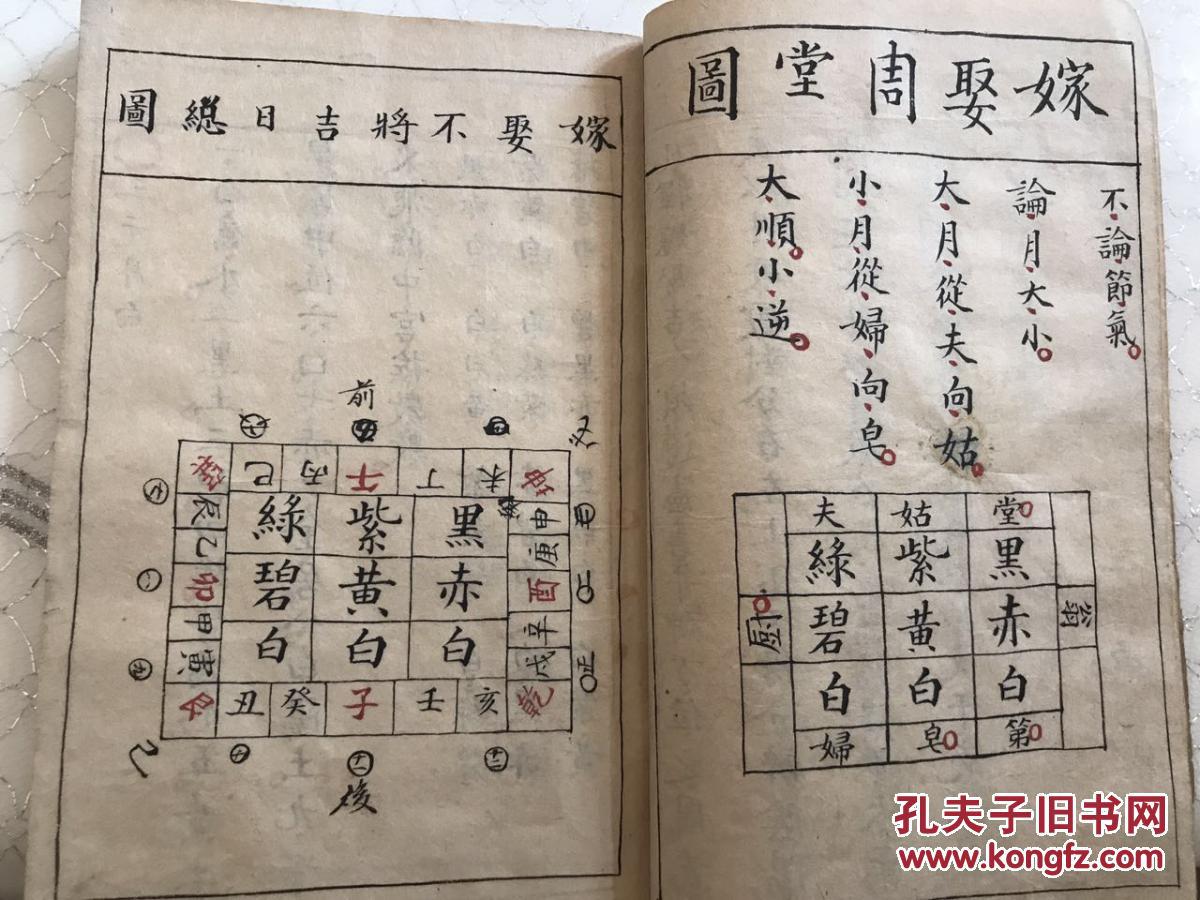 嫁娶周堂圖
不論節氣
論月大小
大月從夫向姑
小月從婦向皂
大順小逆
夫 姑 堂
綠 紫 黑
廚 碧 黃 赤 翁
白 白 白
婦 皂 第
嫁娶不將吉日總圖
前
巽 巳 丙 午 丁 未 坤
辰 綠 紫 黑 申
乙 庚
卯 碧 黃 赤 酉
甲 辛
寅 白 白 白 戌
艮 丑 癸 子 壬 亥 乾
後
孔夫子旧书网
www.kongfz.com